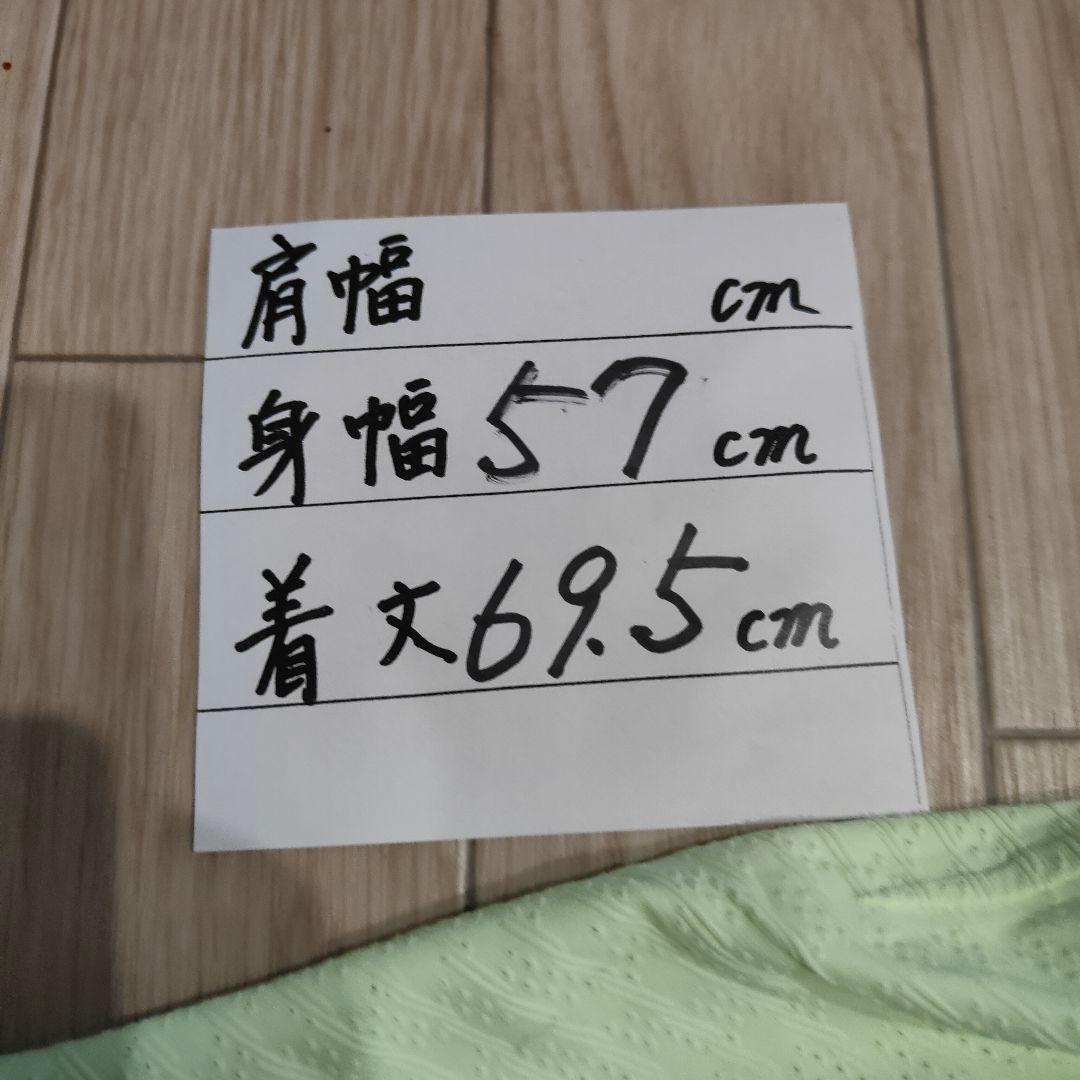 肩幅 cm
身幅 57 cm
着文 69.5 cm